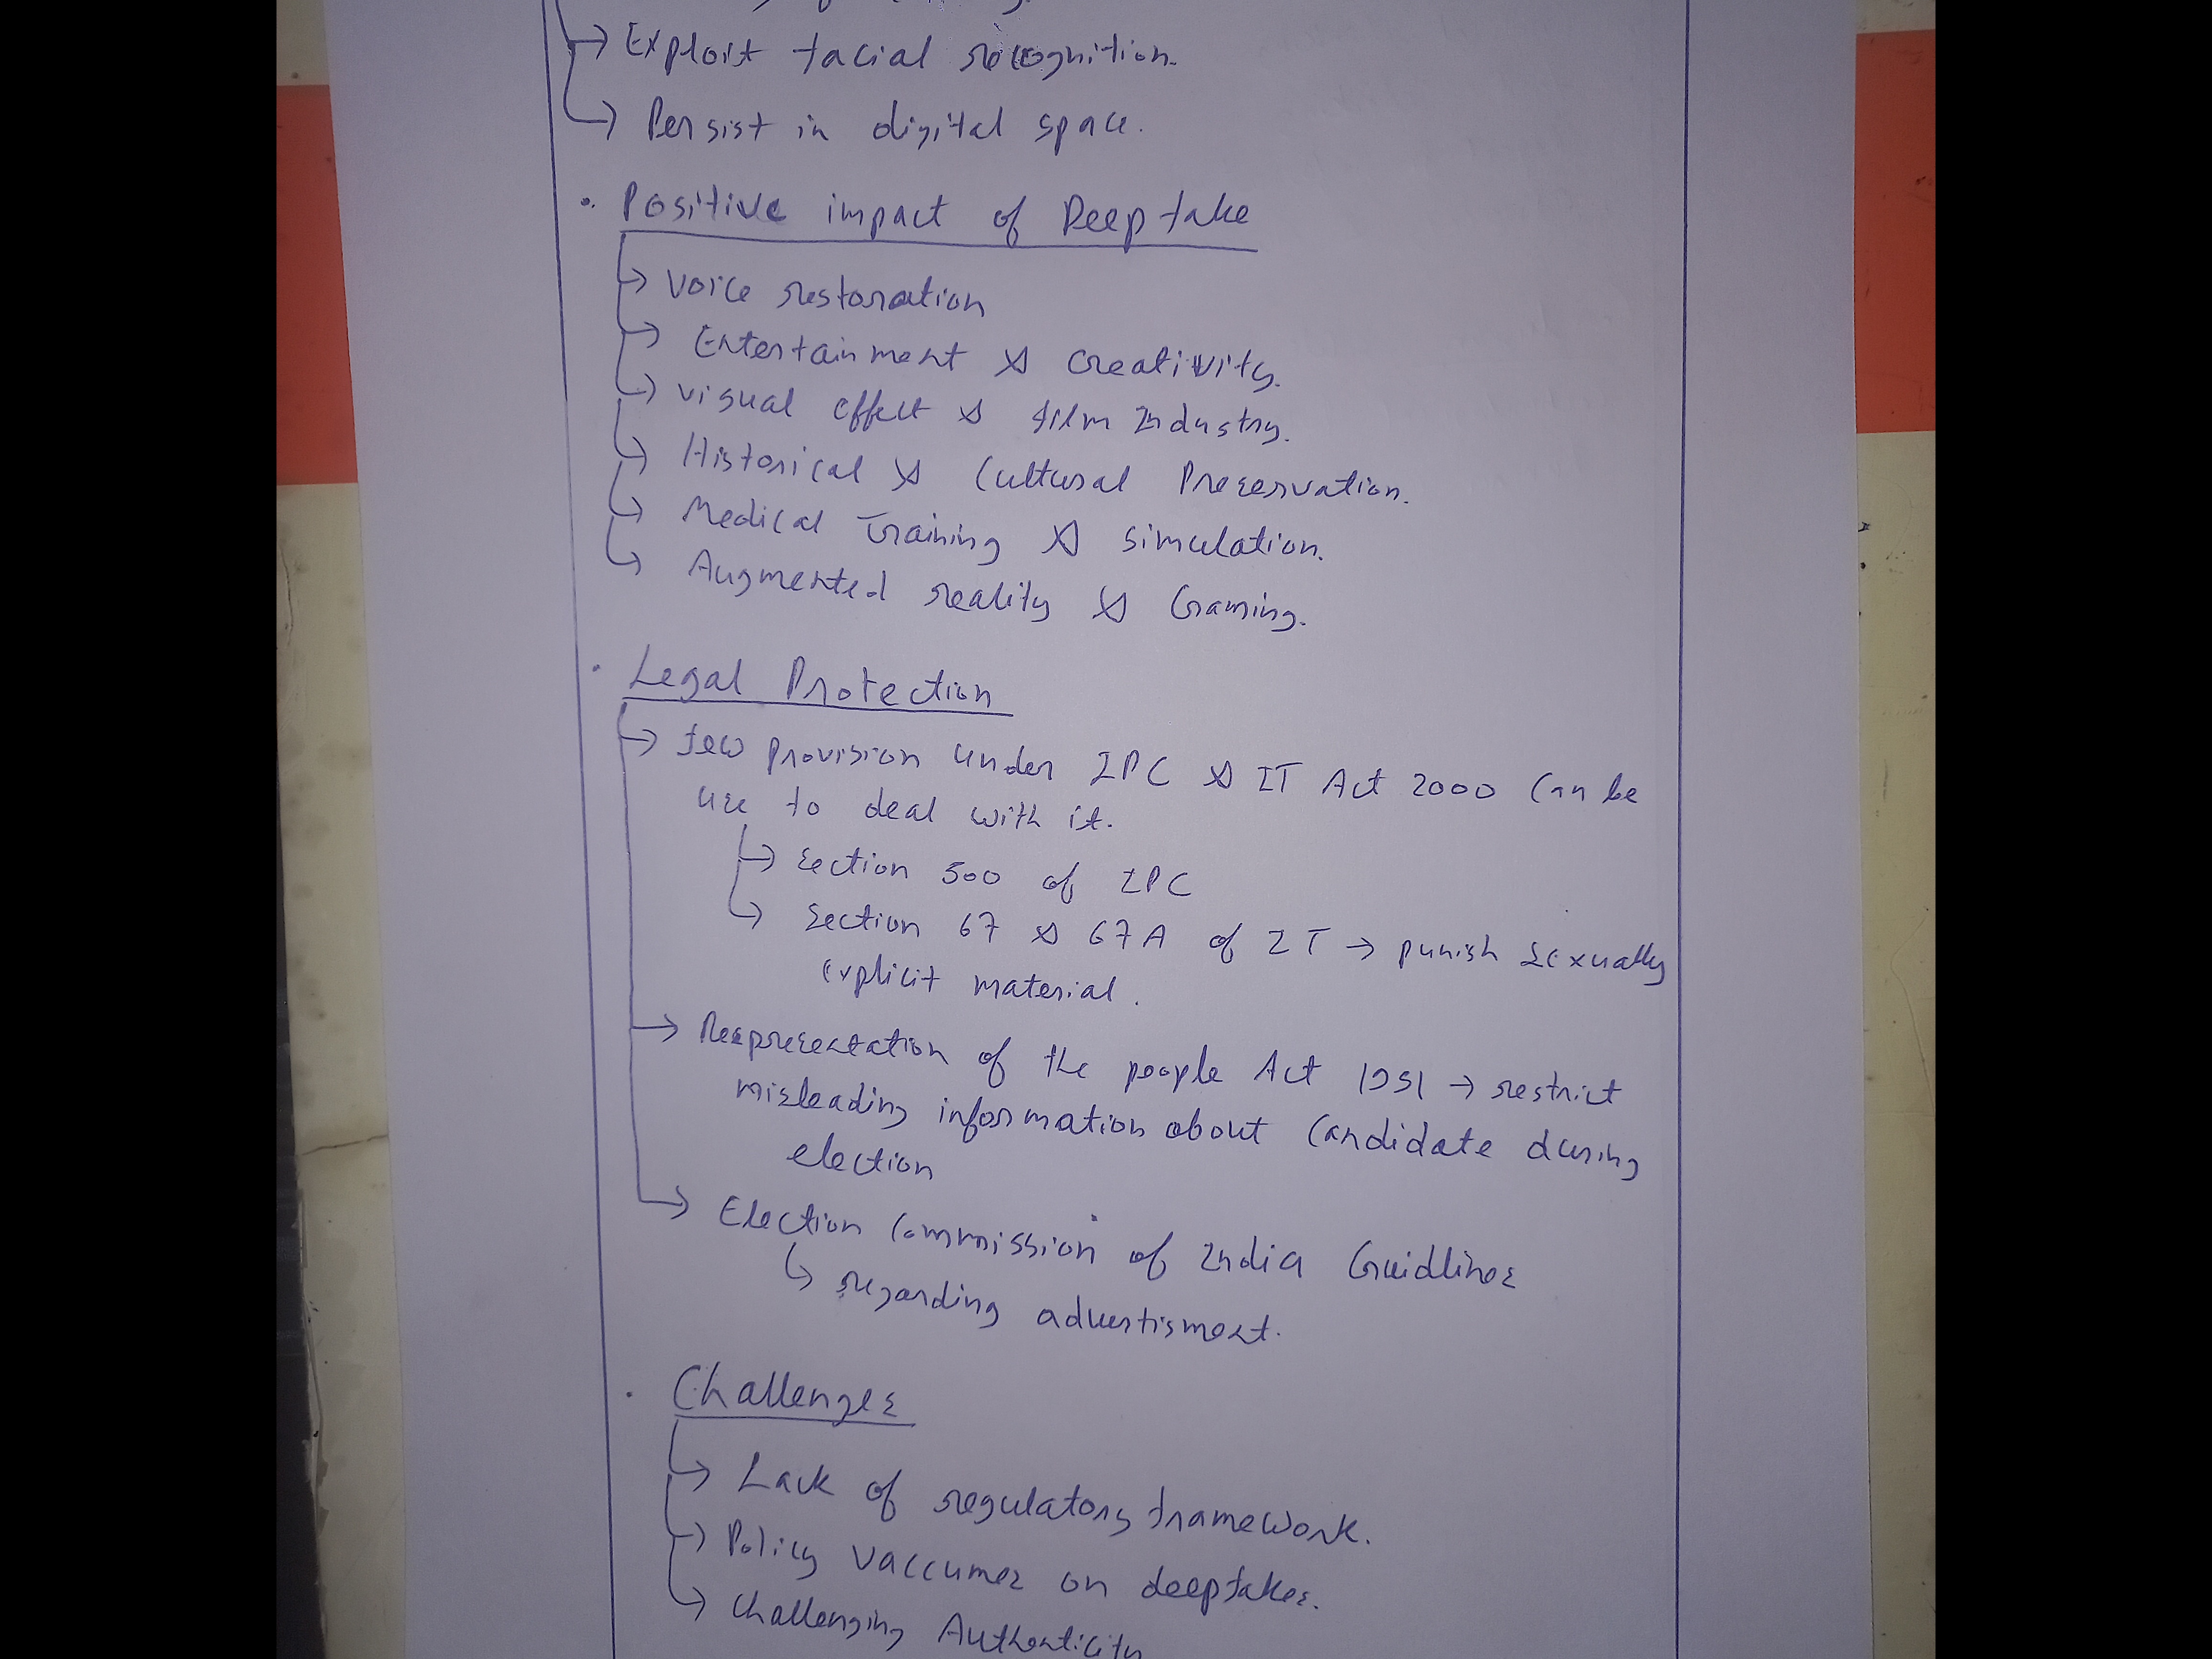 → Exploit facial recognition.
→ Persist in digital space.
• Positive impact of Deepfake
→ Voice restoration
→ Entertainment & Creativity.
→ visual effect & film Industry.
→ Historical & Cultural Preservation.
→ Medical Training & simulation.
→ Augmented reality & Gaming.
• Legal Protection
→ few provision under IPC & IT Act 2000 Can be
use to deal with it.
→ Section 500 of IPC
→ Section 67 & 67A of IT → punish Sexually
explicit material.
→ Reapresentation of the people Act 1951 → restrict
misleading information about Candidate during
election
→ Election Commission of India Guidlines
↳ regarding advertisment.
• Challenges
→ Lack of regulatory framework.
→ Policy vaccumes on deepfakes.
→ Challenging Authenticity